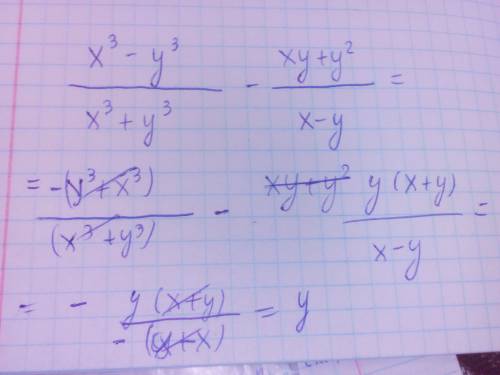 (x³ - y³)/(x³ + y³) - (xy + y²)/(x - y) =
= -(y³ + x³)/(x³ + y³) - xy + y² y(x + y)/(x - y) =
= - y(x + y)/-(y + x) = y